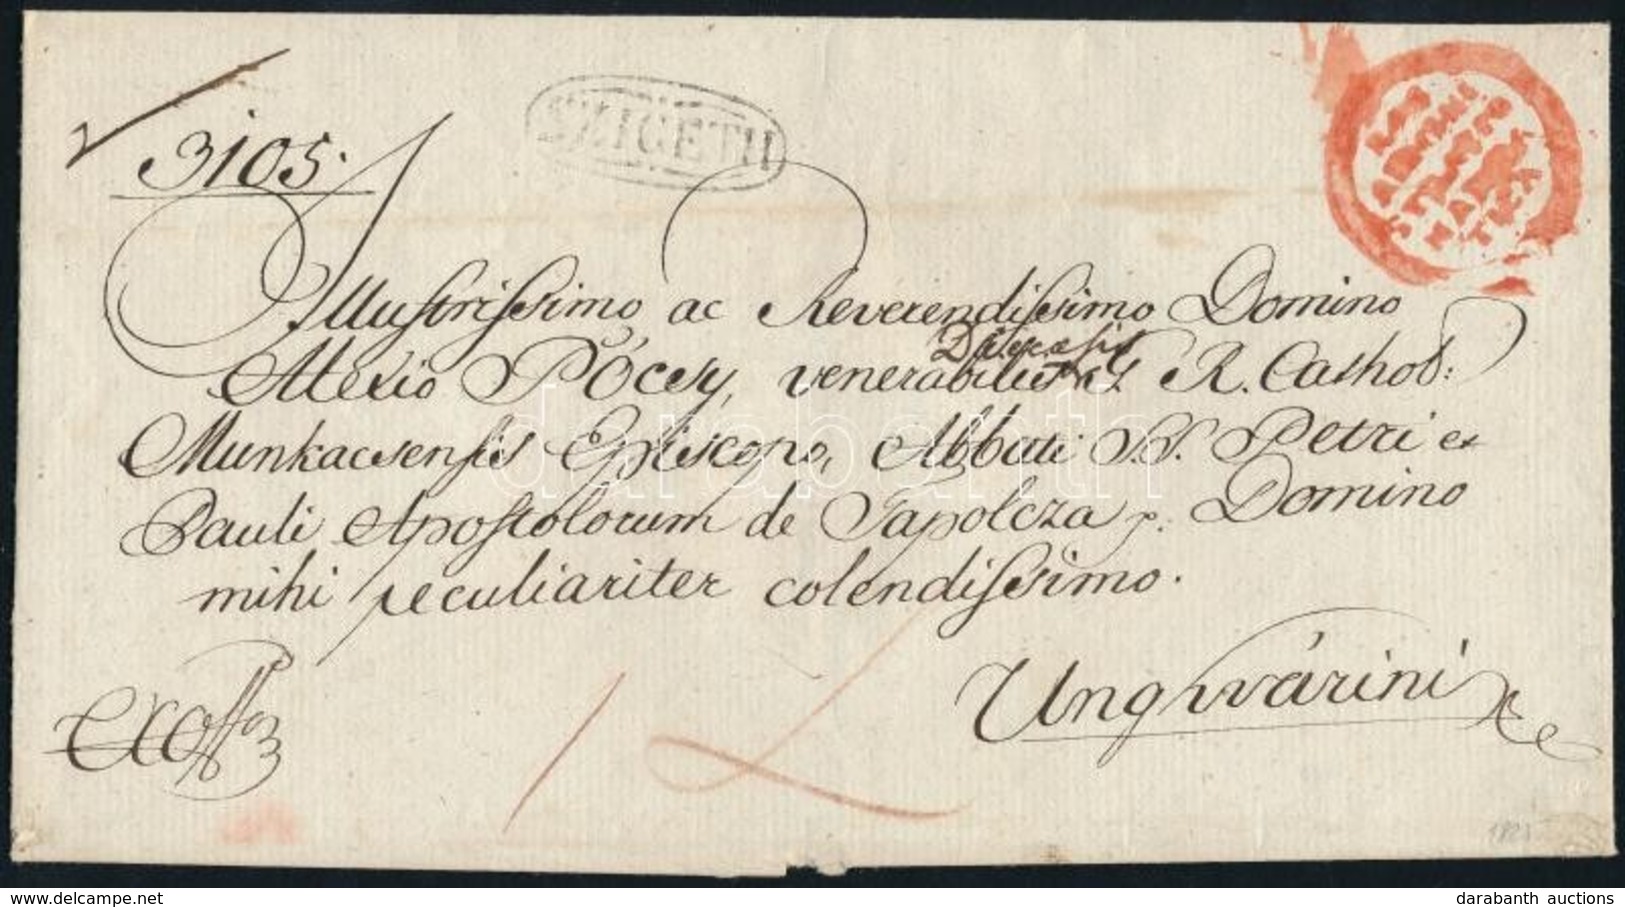 3105.
SZIGETH
Illustrissimo ac Reverendissimo Domino
Alexio Pócsy, venerabilis Diecesis G. R. Cathol:
Munkacsensis Episcopo, Abbati S.S. Petri et
Pauli Apostolorum de Tapolcza p. Domino
mihi peculiariter colendissimo.
Ungvvárini
Exoffo
darabanth
darabanth auctions